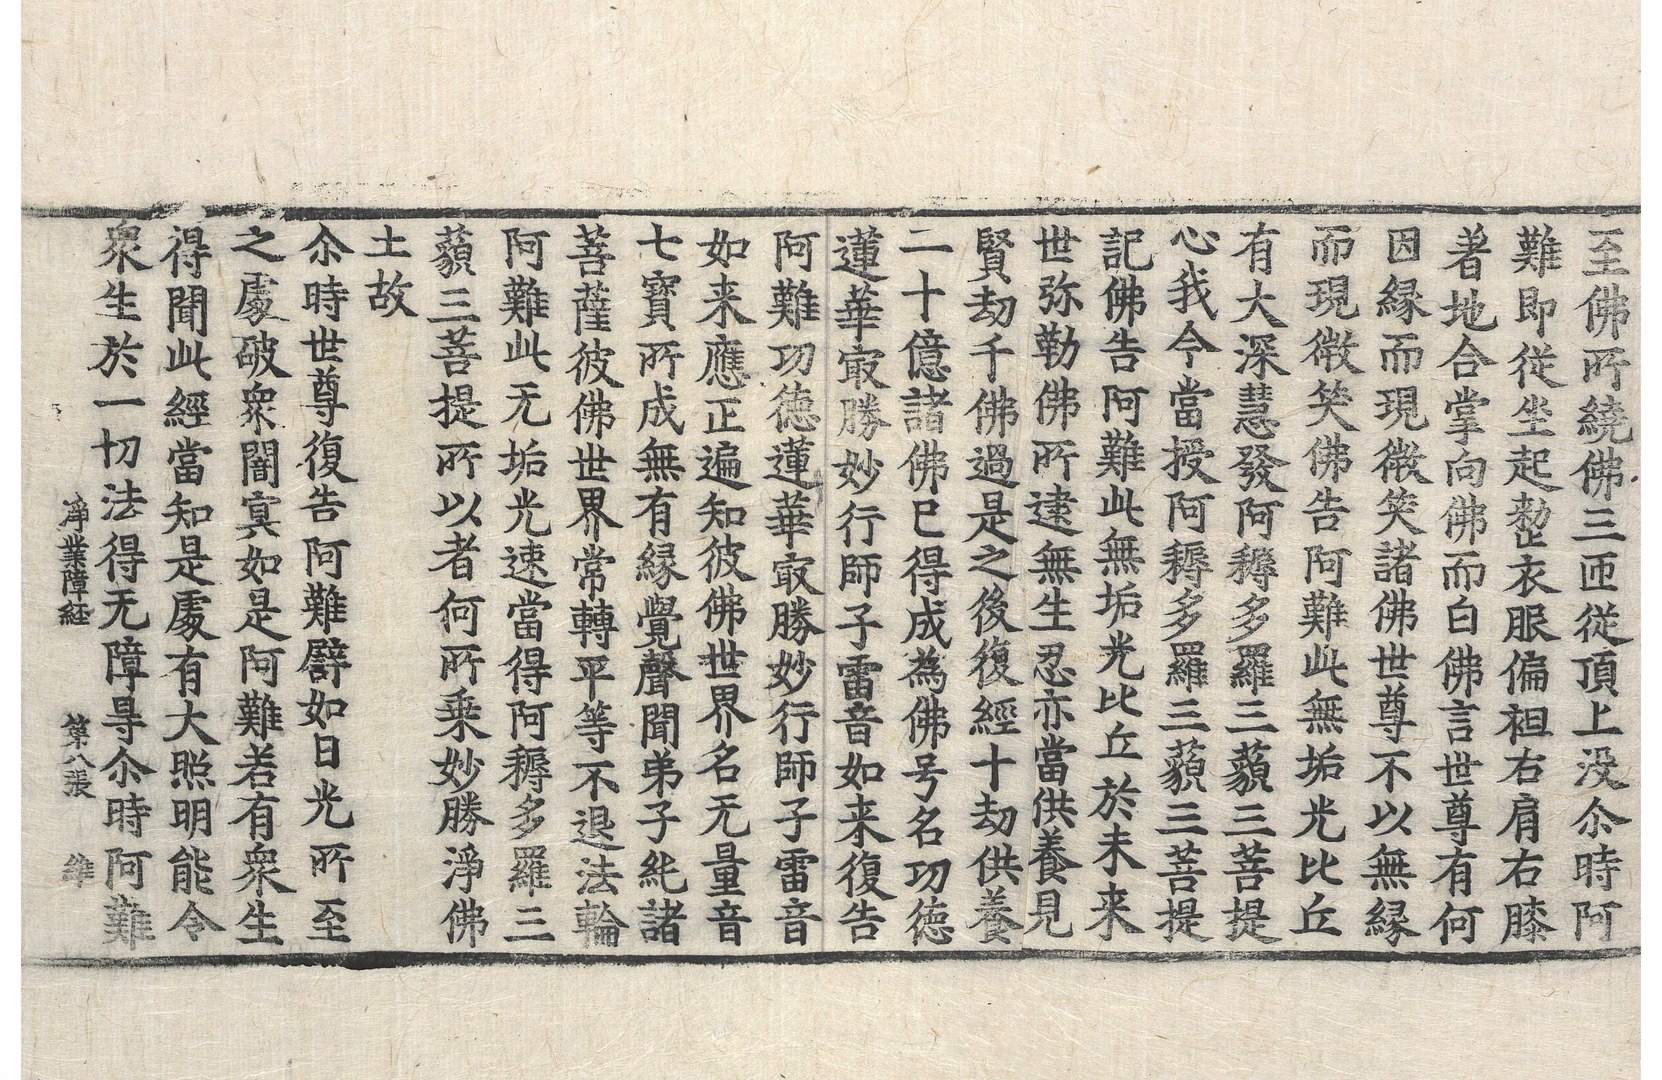 至佛所繞佛三匝從頂上没尒時阿
難即從坐起整衣服偏袒右肩右膝
著地合掌向佛而白佛言世尊有何
因縁而現微笑諸佛世尊不以無縁
而現微笑佛告阿難此無垢光比丘
有大深慧發阿耨多羅三藐三菩提
心我今當授阿耨多羅三藐三菩提
記佛告阿難此無垢光比丘於未来
世弥勒佛所逮無生忍亦當供養見
賢劫千佛過是之後復經十劫供養
二十億諸佛已得成為佛号名功徳
蓮華㝡勝妙行師子雷音如来復告
阿難功徳蓮華㝡勝妙行師子雷音
如来應正遍知彼佛世界名无量音
七寶所成無有縁覺聲聞弟子純諸
菩薩彼佛世界常轉平等不退法輪
阿難此无垢光速當得阿耨多羅三
藐三菩提所以者何所乗妙勝淨佛
土故
尒時世尊復告阿難譬如日光所至
之處破衆闇冥如是阿難若有衆生
得聞此經當知是處有大照明能令
衆生於一切法得无障㝵尒時阿難
淨業障経 第八張 維